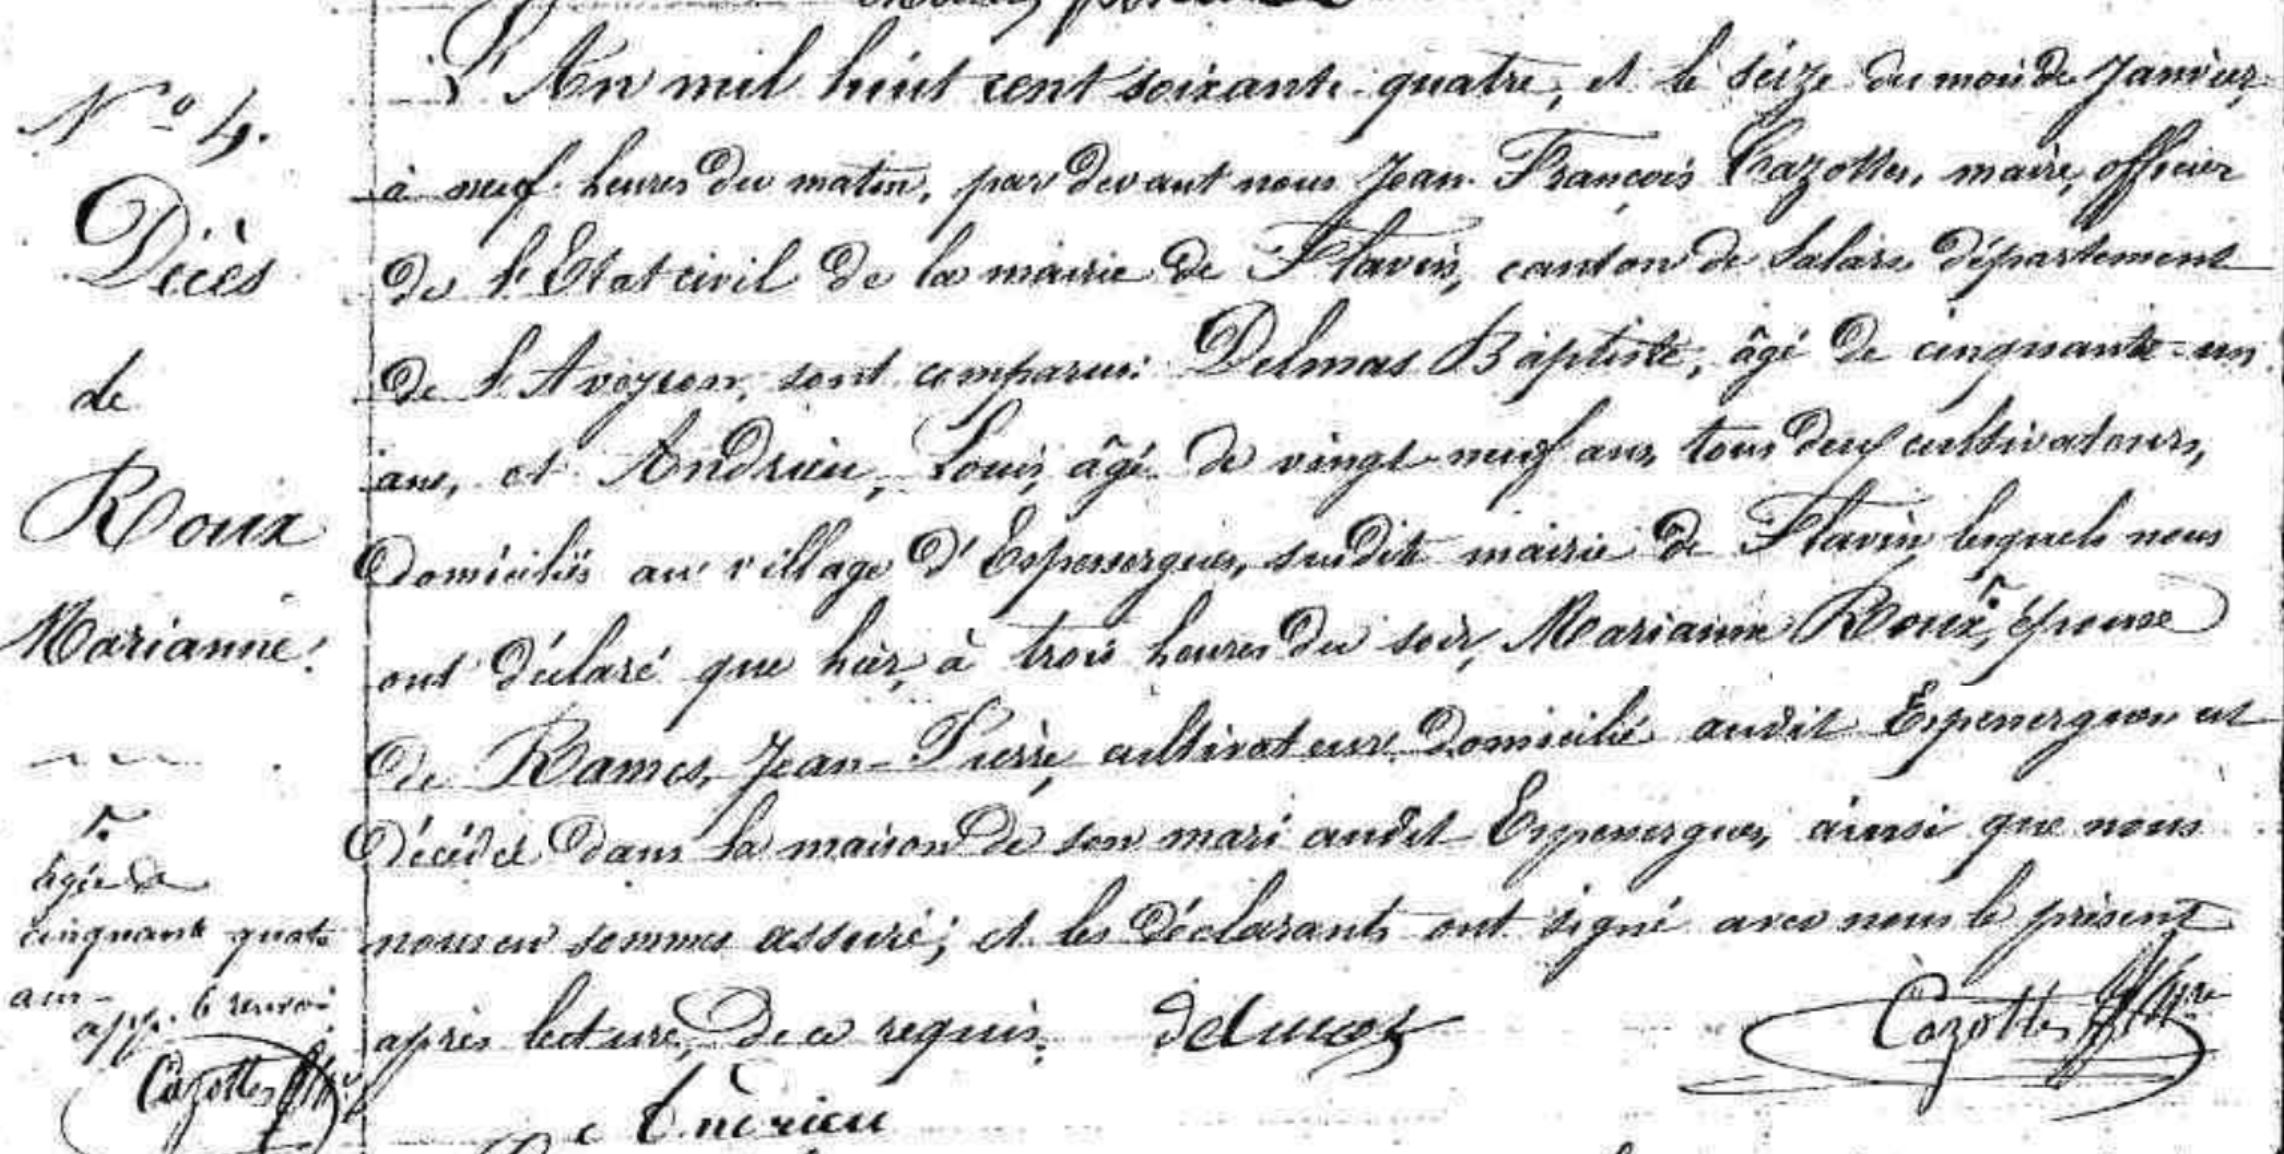 N° 4.
Décès
de
Roux
Marianne.
L'An mil huit cent soixante quatre, et le seize du mois de Janvier,
à neuf heures du matin, par devant nous Jean François Cazottes, maire, officier
de l'Etat civil de la mairie de Flavin, canton de Salars département
de l'Aveyron, sont comparus: Delmas Baptiste, âgé de cinquante-un
ans, et Andrieu, Louis, âgé de vingt-neuf ans, tous deux cultivateurs,
domiciliés au village d'Espenergues, susdite mairie de Flavin, lesquels nous
ont déclaré que hier, à trois heures du soir, Marianne Roux, épouse
de Rames, Jean-Pierre, cultivateur domicilié audit Espenergues est
décédée dans la maison de son mari audit Espenergues, ainsi que nous
nous en sommes assuré; et les déclarants ont signé avec nous le présent
après lecture, de ce requis.
âgée de
cinquante quatre
ans-
app. le renvoi
Cazottes
delmas
Cazottes
Andrieu